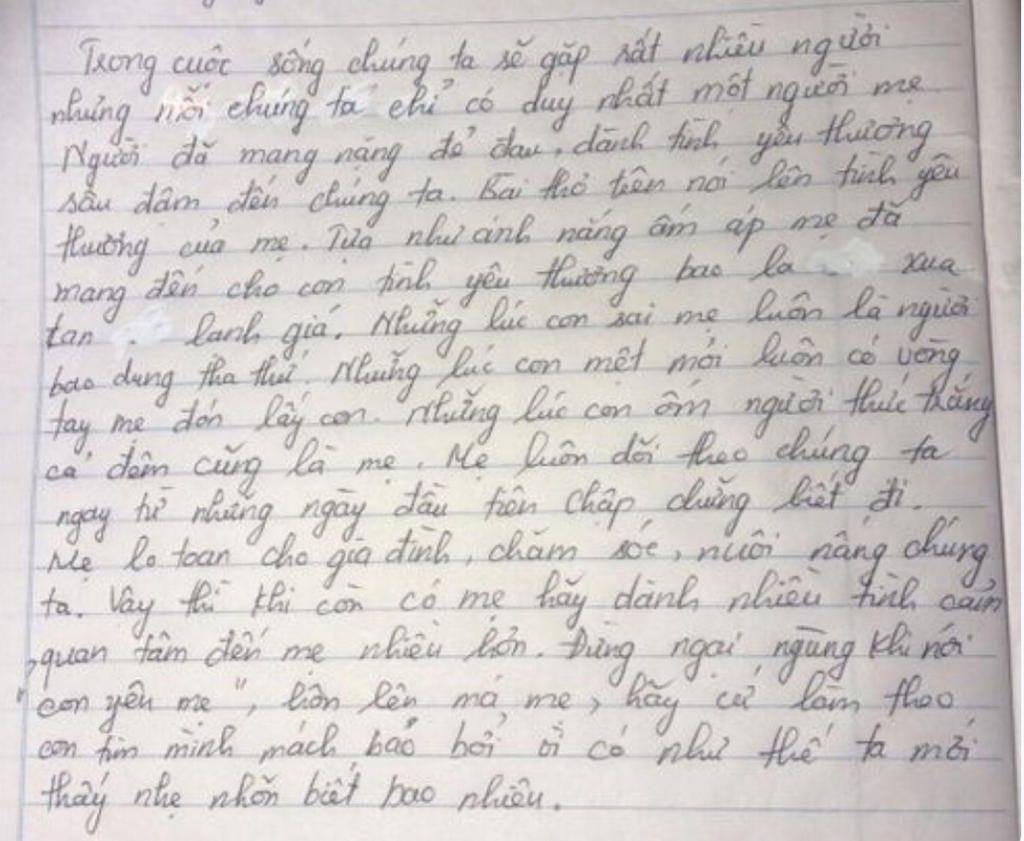 Trong cuộc sống chúng ta sẽ gặp rất nhiều người
nhưng mỗi chúng ta chỉ có duy nhất một người mẹ.
Người đã mang nặng đẻ đau, dành tình yêu thương
sâu đậm đến chúng ta. Bài thơ trên nói lên tình yêu
thương của mẹ. Tựa như ánh nắng ấm áp mẹ đã
mang đến cho con tình yêu thương bao la xua
tan lạnh giá. Những lúc con sai mẹ luôn là người
bao dung tha thứ. Những lúc con mệt mỏi luôn có vòng
tay mẹ đón lấy con. Những lúc con ốm người thức trắng
cả đêm cũng là mẹ. Mẹ luôn dõi theo chúng ta
ngay từ những ngày đầu tiên chập chững biết đi.
Mẹ lo toan cho gia đình, chăm sóc, nuôi nấng chúng
ta. Vậy thì khi còn có mẹ hãy dành nhiều tình cảm
, quan tâm đến mẹ nhiều hơn. Đừng ngại ngùng khi nói
"con yêu mẹ", hôn lên má mẹ, hãy cứ làm theo
con tim mình mách bảo bởi vì có như thế ta mới
thấy nhẹ nhõm biết bao nhiêu.